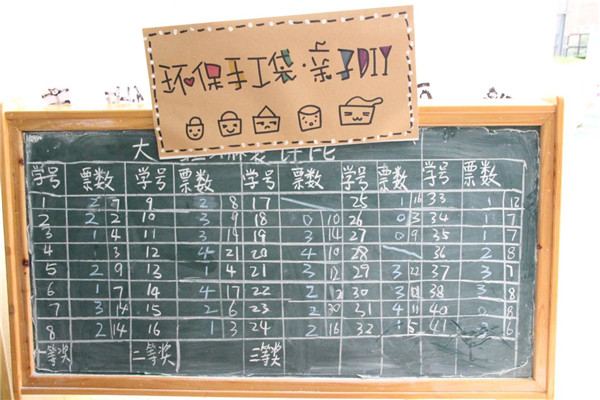 环保手工袋·亲子DIY
大
学号 票数 学号 票数 学号 票数 学号 票数 学号 票数
1 2 7 9 2 8 17 25 1 16 33 1 12
2 2 2 10 3 9 18 0 10 26 0 3 34 1 7
3 1 4 11 3 14 19 3 14 27 0 9 35 1 7
4 1 3 12 4 21 20 4 10 28 36 2 8
5 2 9 13 1 4 21 3 12 29 3 37 3
6 1 7 14 4 17 22 2 12 30 3 38 3 8
7 3 14 15 2 6 23 2 30 31 4 40 8
8 2 14 16 1 3 24 2 16 32 5 41 6
一等奖 二等奖 三等奖